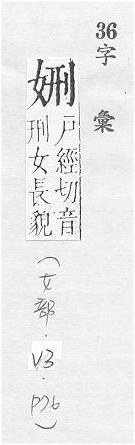 36字彙
戶經切音
刑女長貌
(女部・V3・